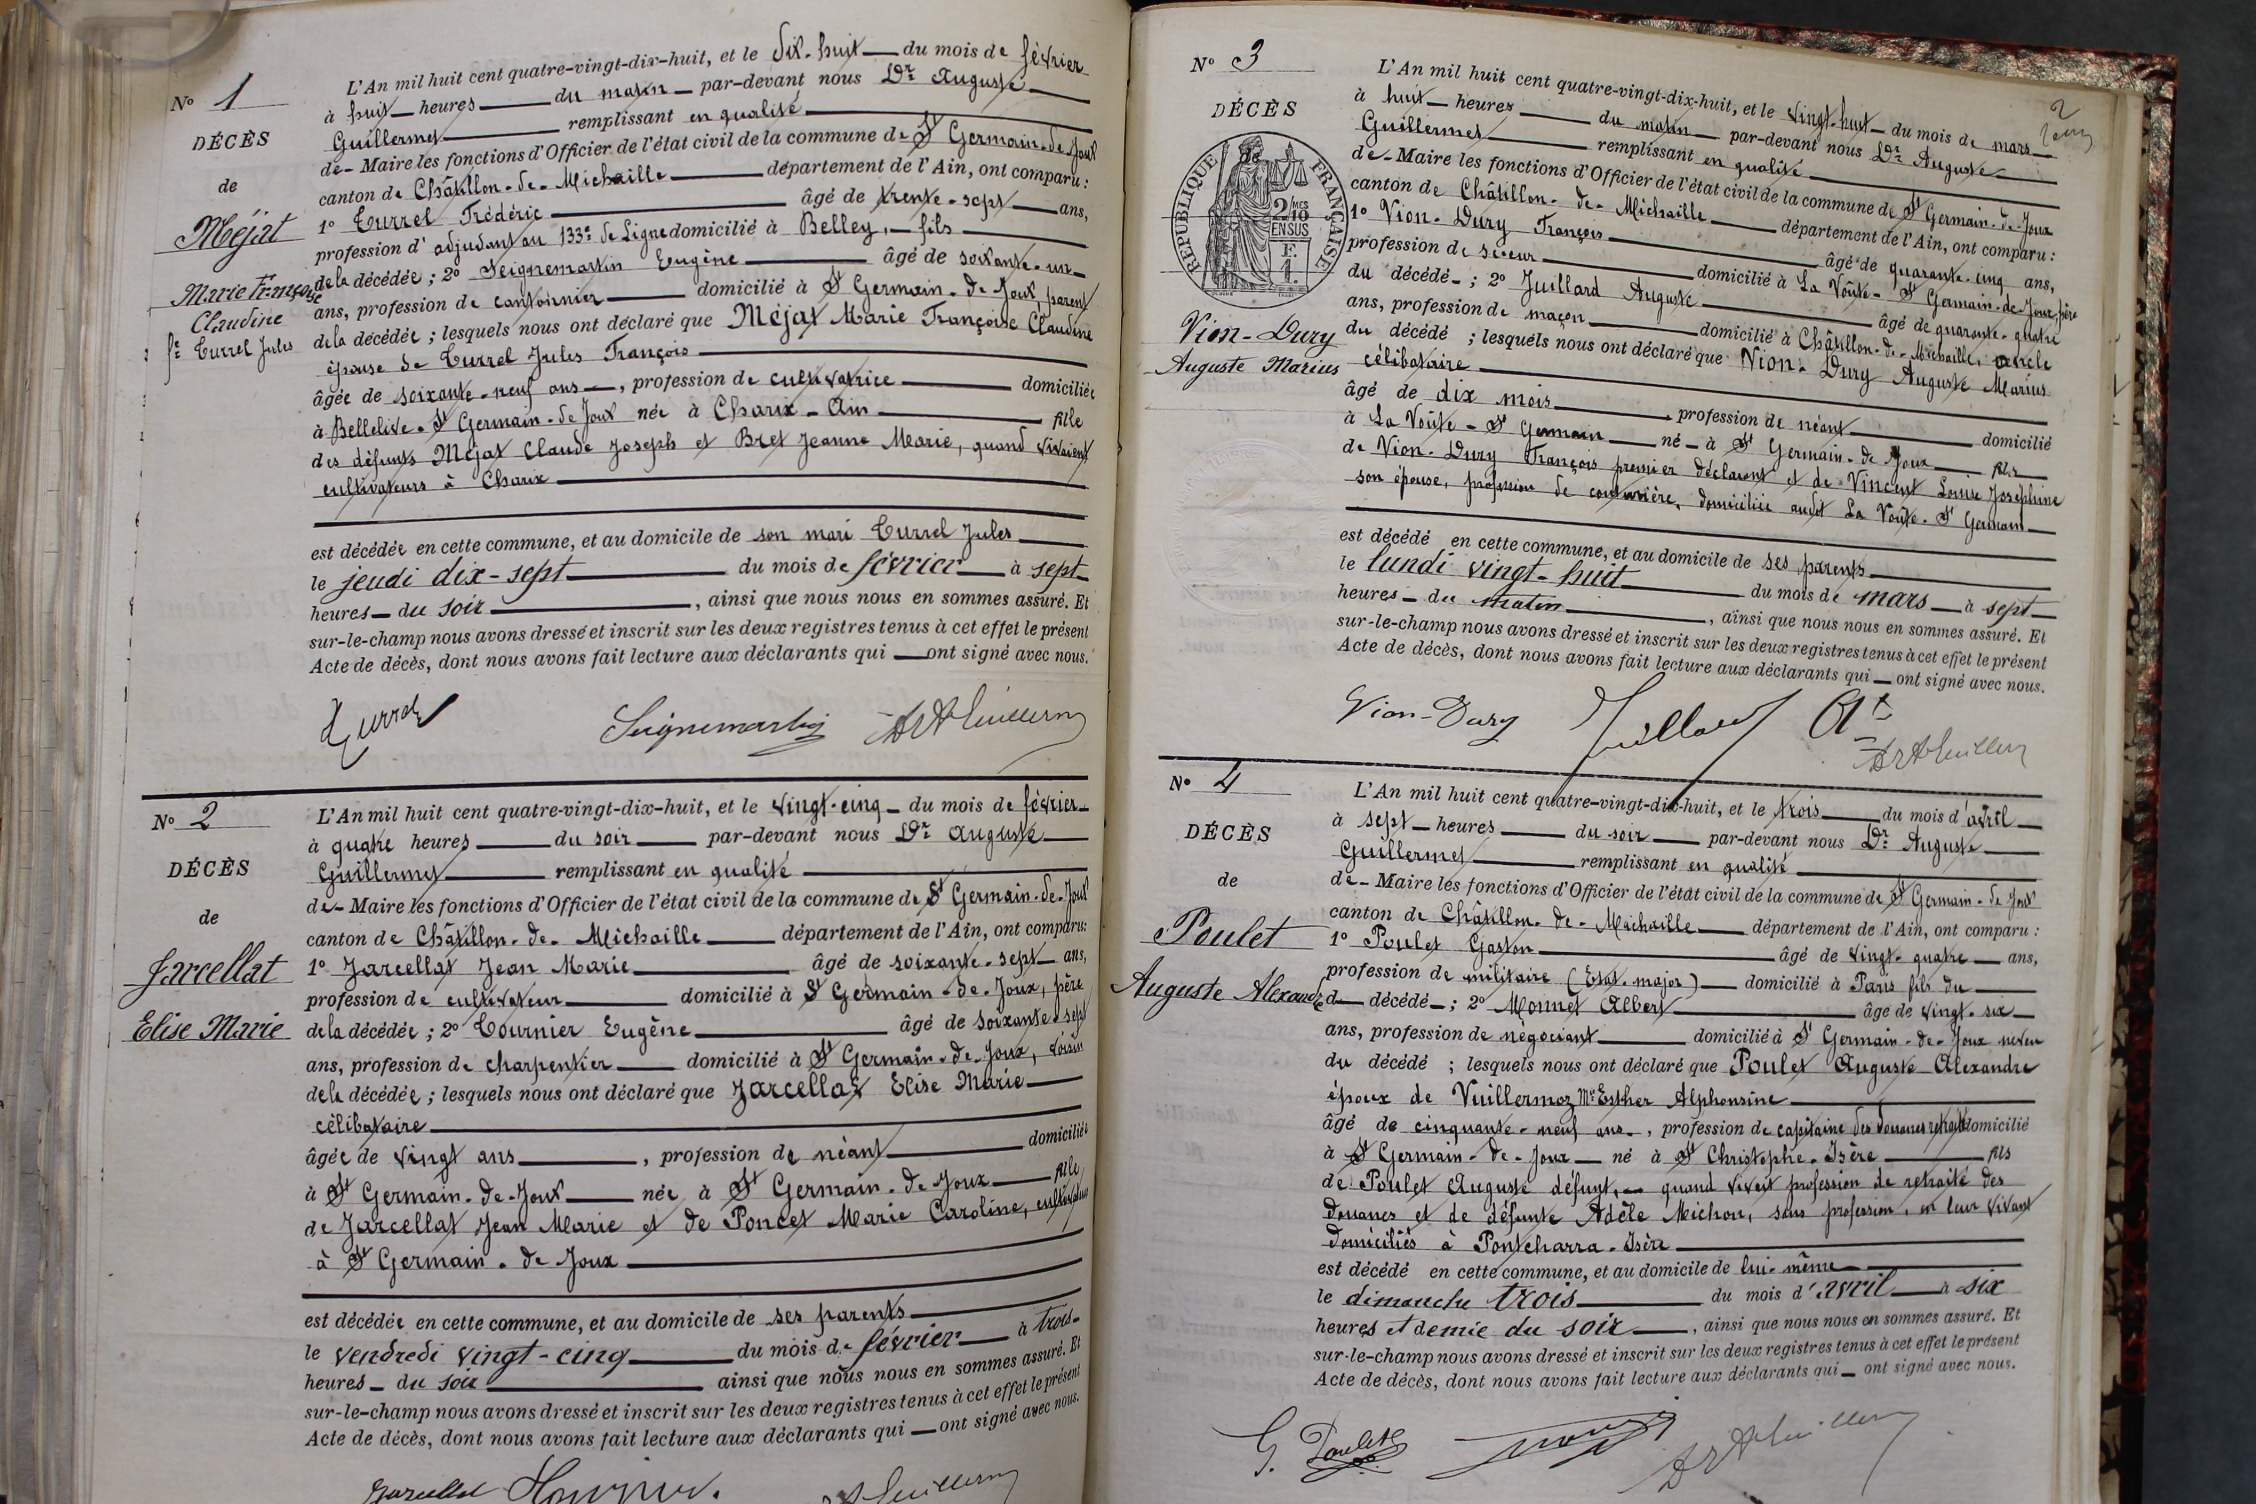 N° 1
DÉCÈS
de
Méjat
Marie Françoise
Claudine
fe Turrel Jules
L'An mil huit cent quatre-vingt-dix-huit, et le dix-huit du mois de février
à huit heures du matin par-devant nous Dr Auguste
Guillermet remplissant en qualité
de Maire les fonctions d'Officier de l'état civil de la commune de St Germain-de-Joux
canton de Châtillon-de-Michaille département de l'Ain, ont comparu :
1° Turrel Frédéric âgé de trente-sept ans,
profession d'adjudant au 133e de Ligne domicilié à Belley, fils
de la décédée ; 2° Seignemartin Eugène âgé de soixante-un
ans, profession de cantonnier domicilié à St Germain-de-Joux, parent
de la décédée ; lesquels nous ont déclaré que Méjat Marie Françoise Claudine
épouse de Turrel Jules François
âgée de soixante-neuf ans, profession de cultivatrice domiciliée
à Bellelive-St Germain-de-Joux née à Charix-Ain fille
des défunts Méjat Claude Joseph et Bret Jeanne Marie, quand vivaient
cultivateurs à Charix
est décédée en cette commune, et au domicile de son mari Turrel Jules
le jeudi dix-sept du mois de février à sept
heures du soir, ainsi que nous nous en sommes assuré. Et
sur-le-champ nous avons dressé et inscrit sur les deux registres tenus à cet effet le présent
Acte de décès, dont nous avons fait lecture aux déclarants qui ont signé avec nous.
Turrel Seignemartin Dr A Guillermet
N° 2
DÉCÈS
de
Jarcellat
Elise Marie
L'An mil huit cent quatre-vingt-dix-huit, et le vingt-cinq du mois de février
à quatre heures du soir par-devant nous Dr Auguste
Guillermet remplissant en qualité
de Maire les fonctions d'Officier de l'état civil de la commune de St Germain-de-Joux
canton de Châtillon-de-Michaille département de l'Ain, ont comparu :
1° Jarcellat Jean Marie âgé de soixante-sept ans,
profession de cultivateur domicilié à St Germain-de-Joux, père
de la décédée ; 2° Tournier Eugène âgé de soixante-sept
ans, profession de charpentier domicilié à St Germain-de-Joux, voisin
de la décédée ; lesquels nous ont déclaré que Jarcellat Elise Marie
célibataire
âgée de vingt ans, profession de néant domiciliée
à St Germain-de-Joux née à St Germain-de-Joux fille
de Jarcellat Jean Marie et de Poncet Marie Caroline, cultivateurs
à St Germain-de-Joux
est décédée en cette commune, et au domicile de ses parents
le vendredi vingt-cinq du mois de février à trois
heures du soir ainsi que nous nous en sommes assuré. Et
sur-le-champ nous avons dressé et inscrit sur les deux registres tenus à cet effet le présent
Acte de décès, dont nous avons fait lecture aux déclarants qui ont signé avec nous.
Jarcellat Dr A Guillermet
2
N° 3
DÉCÈS
de
RÉPUBLIQUE FRANÇAISE
2/10 MES
EN SUS
F.
1.
Vion-Dury
Auguste Marius
L'An mil huit cent quatre-vingt-dix-huit, et le vingt-huit du mois de mars
à huit heures du matin par-devant nous Dr Auguste
Guillermet remplissant en qualité
de Maire les fonctions d'Officier de l'état civil de la commune de St Germain-de-Joux
canton de Châtillon-de-Michaille département de l'Ain, ont comparu :
1° Vion-Dury François âgé de quarante-cinq ans,
profession de scieur domicilié à La Voûte-St Germain-de-Joux, père
du décédé ; 2° Juillard Auguste âgé de quarante-quatre
ans, profession de maçon domicilié à Châtillon-de-Michaille, oncle
du décédé ; lesquels nous ont déclaré que Vion-Dury Auguste Marius
célibataire
âgé de dix mois, profession de néant domicilié
à La Voûte-St Germain né à St Germain-de Joux fils
de Vion-Dury François premier déclarant et de Vincent Louise Joséphine
son épouse, profession de couturière, domiciliée audit La Voûte-St Germain
est décédé en cette commune, et au domicile de ses parents
le lundi vingt-huit du mois de mars à sept
heures du matin, ainsi que nous nous en sommes assuré. Et
sur-le-champ nous avons dressé et inscrit sur les deux registres tenus à cet effet le présent
Acte de décès, dont nous avons fait lecture aux déclarants qui ont signé avec nous.
Vion-Dury Juillard At Dr A Guillermet
N° 4
DÉCÈS
de
Poulet
Auguste Alexandre
L'An mil huit cent quatre-vingt-dix-huit, et le trois du mois d'avril
à sept heures du soir par-devant nous Dr Auguste
Guillermet remplissant en qualité
de Maire les fonctions d'Officier de l'état civil de la commune de St Germain-de Joux
canton de Châtillon-de-Michaille département de l'Ain, ont comparu :
1° Poulet Gaston âgé de vingt-quatre ans,
profession de militaire (Etat-major) domicilié à Paris fils du
décédé ; 2° Monnet Albert âgé de vingt-six
ans, profession de négociant domicilié à St Germain-de-Joux neveu
du décédé ; lesquels nous ont déclaré que Poulet Auguste Alexandre
époux de Vuillermoz Mie Esther Alphonsine
âgé de cinquante-neuf ans, profession de capitaine des douanes retraité domicilié
à St Germain-de-Joux né à St Christophe-Isère fils
de Poulet Auguste défunt, quand vivait profession de retraité des
douanes et de défunte Adèle Michon, sans profession, en leur vivant
domiciliés à Pontcharra-Isère
est décédé en cette commune, et au domicile de lui-même
le dimanche trois du mois d'avril à six
heures et demie du soir, ainsi que nous nous en sommes assuré. Et
sur-le-champ nous avons dressé et inscrit sur les deux registres tenus à cet effet le présent
Acte de décès, dont nous avons fait lecture aux déclarants qui ont signé avec nous.
G. Poulet Dr A Guillermet